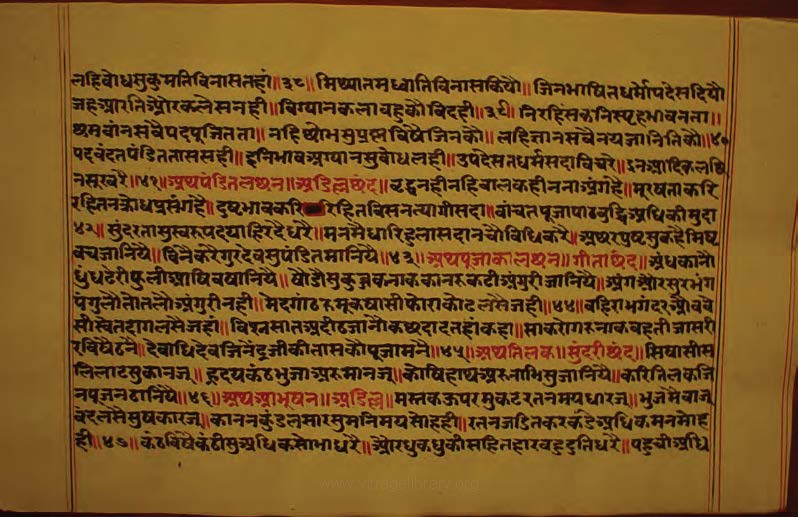 लहिबोधसुकुमतिविनासतहां॥३८॥मिथ्यातमध्वांतिविनासकियौ॥जिनभाषितधर्मोपदेसदियौ
जहआरतिऔरकलेसनही॥विग्यानकलाबहुकौविदही॥३९॥निरहिंसकनिस्पृहभावनता॥
थमवांनसवैपदपूजितता॥नहिक्षोभसुपुस्तविषैजिनकौ॥लहिज्ञानसवैनयजानितिकौ॥४०
पदवंदतपंडिततासमही॥दुनिभावअग्यानसुबोधलही॥उपदेसतधर्मसदाविचरै॥इनआदिकल
नसूरवरै॥४१॥अथपंडितलक्षन॥अडिल्लछंद॥वृद्धनहीनहिबालकहीननाअंगहै॥मूरषताकरि
रहितनक्रोधप्रसंगहै॥दुष्टभावकरि रहितविसनत्यागीसदा॥वांचतपूजापाठबुद्धिअधिकीमुदा
४२॥सुंदरतामुखरूपदयाहिरदेधरै॥मनमैधारिहुलासदानचौविधिकरै॥अक्षरपुष्टसुकहैमिष्ट
वचजानियै॥विनैकरैगुरदेवसुपंडितमानियै॥४३॥अथपूजाकालक्षन॥गीताछंद॥अंधकानौ
धुंधटेरीफुलीआषिवषानियै॥षोडौसुकुब्जवनाककानरुकटीअंगुरीजानियै॥अंगऔरसुरभंग
पंगुलोतोतलोअंगुरीनही॥मदगांठरुमूकषासीफोराकोटलसैजही॥४४॥वहिराभगंदरऔवबे
सीस्वेतदागलसैजहां॥विसनसातअदीठजानौकथदादतहांकहा॥साकरोगरुनाकवहतीजासरी
रविषैठनै॥देवाधिदेवजिनेंद्रजीकीतासकौपूजामनै॥४५॥अथतिलक॥सुंदरीछंद॥सिषासीस
लिलाटसुकानजू॥हृदयकंठभुजाअरुमानजू॥कोषिहाथअरुनाभिसुजानियै॥करितिलकजि
नपूजनठानियै॥४६॥अथआभूषन॥अडिल्ल॥मस्तकऊपरमुकटरतनमयधारजू॥भुजमैवाजू
वंदलसैसुषकारजू॥काननकुंडलसारसुमनिमयसोहही॥रतनजडितकरकडेअधिकमनमोह
ही॥४७॥कंठविषैकंठीसुअधिकसोभाधरै॥औरधुकधुकीसहितहारबहुदुतिधरै॥पहुचीअधि
www.vitragelibrary.org